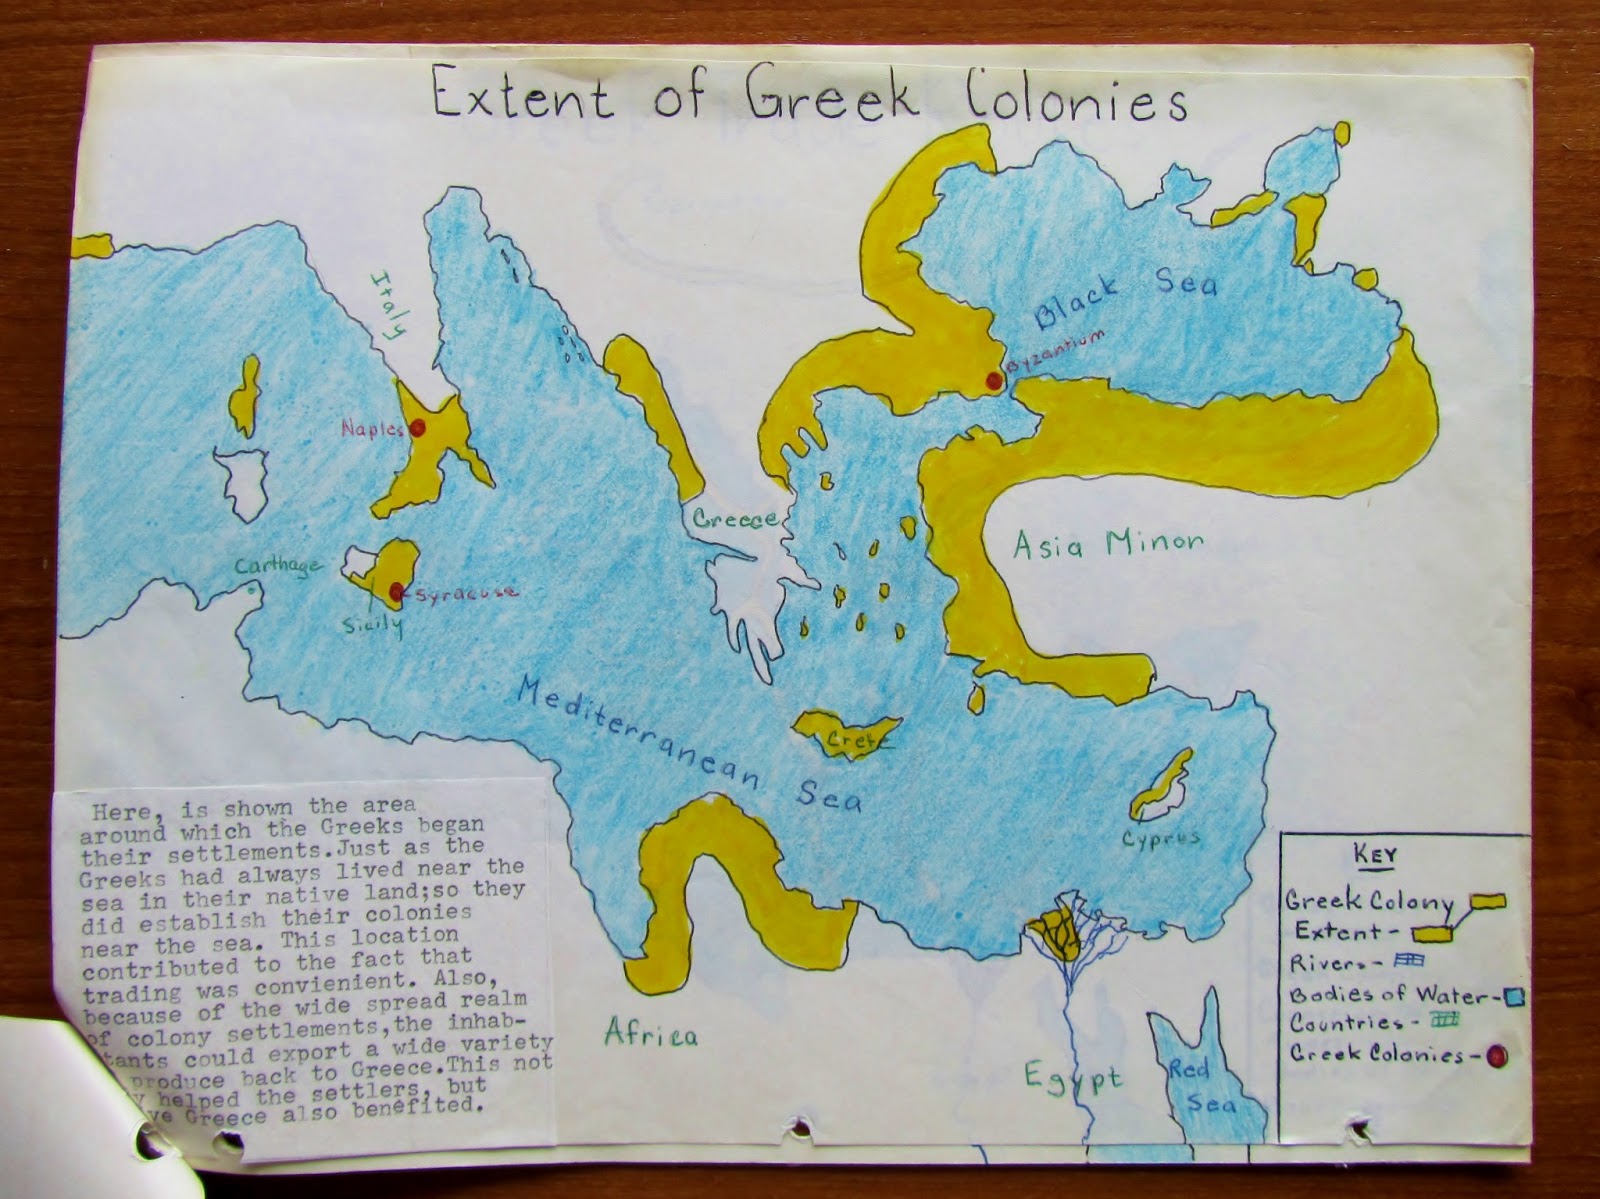 Extent of Greek Colonies
Italy
Black Sea
Byzantium
Naples
Greece
Asia Minor
Carthage
Syracuse
Sicily
Mediterranean Sea
Crete
Cyprus
Africa
Egypt
Red
Sea
Here, is shown the area
around which the Greeks began
their settlements.Just as the
Greeks had always lived near the
sea in their native land;so they
did establish their colonies
near the sea. This location
contributed to the fact that
trading was convienient. Also,
because of the wide spread realm
of colony settlements,the inhab-
tants could export a wide variety
produce back to Greece.This not
helped the settlers, but
Greece also benefited.
KEY
Greek Colony
Extent-
Rivers-
Bodies of Water-
Countries-
Greek Colonies-